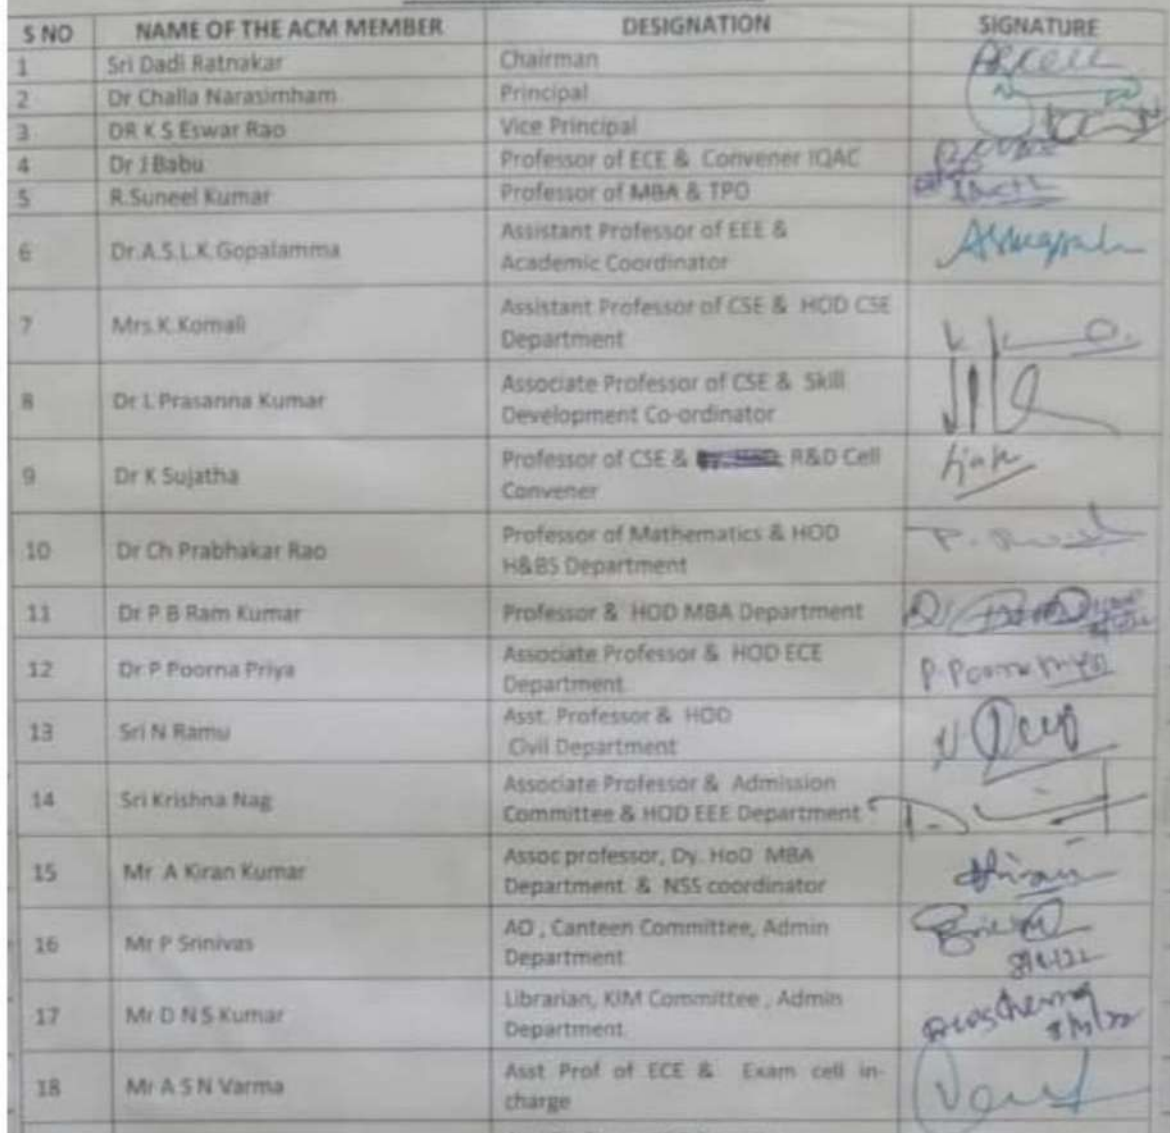 S NO NAME OF THE ACM MEMBER DESIGNATION SIGNATURE
1 Sri Dadi Ratnakar Chairman
2 Dr Challa Narasimham Principal
3 DR K S Eswar Rao Vice Principal
4 Dr J Babu Professor of ECE & Convener IQAC
5 R.Suneel Kumar Professor of MBA & TPO
6 Dr.A.S.L.K.Gopalamma Assistant Professor of EEE &
Academic Coordinator
7 Mrs.K.Komali Assistant Professor of CSE & HOD CSE
Department
8 Dr L Prasanna Kumar Associate Professor of CSE & Skill
Development Co-ordinator
9 Dr K Sujatha Professor of CSE & R&D Cell
Convener
10 Dr Ch Prabhakar Rao Professor of Mathematics & HOD
H&BS Department
11 Dr P B Ram Kumar Professor & HOD MBA Department
12 Dr P Poorna Priya Associate Professor & HOD ECE
Department P. Poorna Priya
13 Sri N Ramu Asst. Professor & HOD
Civil Department
14 Sri Krishna Nag Associate Professor & Admission
Committee & HOD EEE Department
15 Mr A Kiran Kumar Assoc professor, Dy. HoD MBA
Department & NSS coordinator
16 Mr P Srinivas AO , Canteen Committee, Admin
Department
17 Mr D N S Kumar Librarian, KIM Committee , Admin
Department
18 Mr A S N Varma Asst Prof of ECE & Exam cell in-
charge